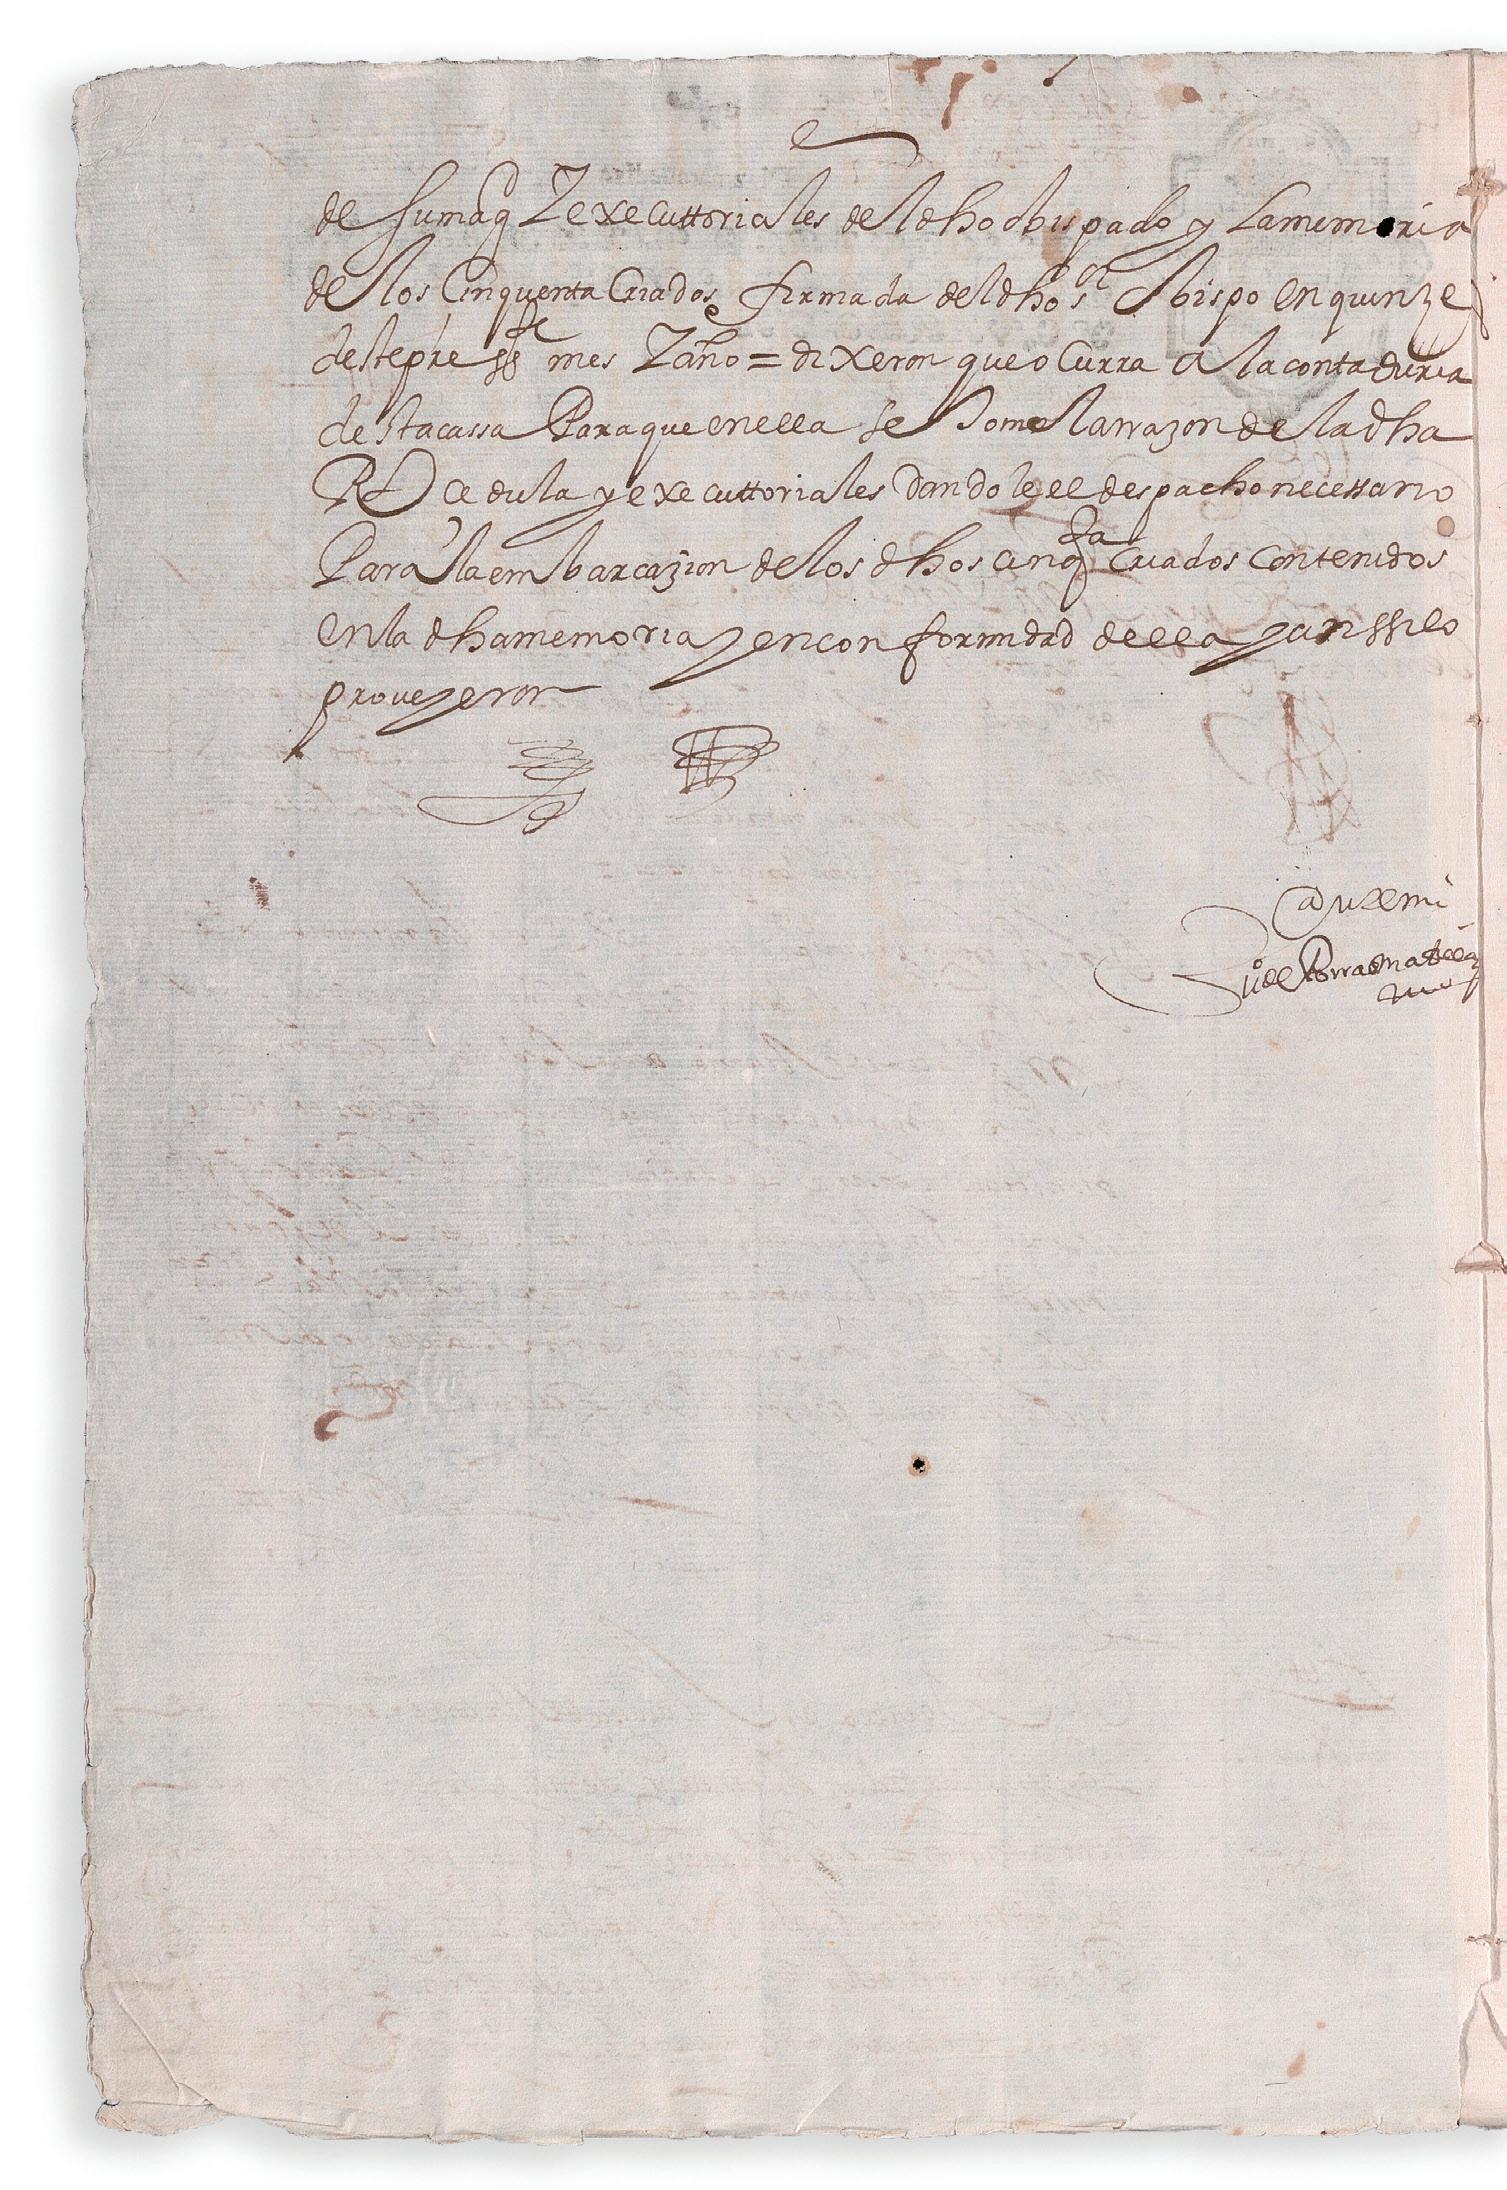 de su magd Y executtoriales del dho obispado y la memoria
de los Cinquenta Criados firmada del dho sr obispo en quinze
deste press.te mes Y año = dixeron que ocurra a la contaduria
desta cassa Para que en ella se tome la rrazon de la dha
Rl cedula y executtoriales dandole el despacho necessario
Para la embarcazion de los dhos cinqta criados contenidos
en la dha memoria y en conformidad de ella y an ssi lo
proveyeron
Ante mi